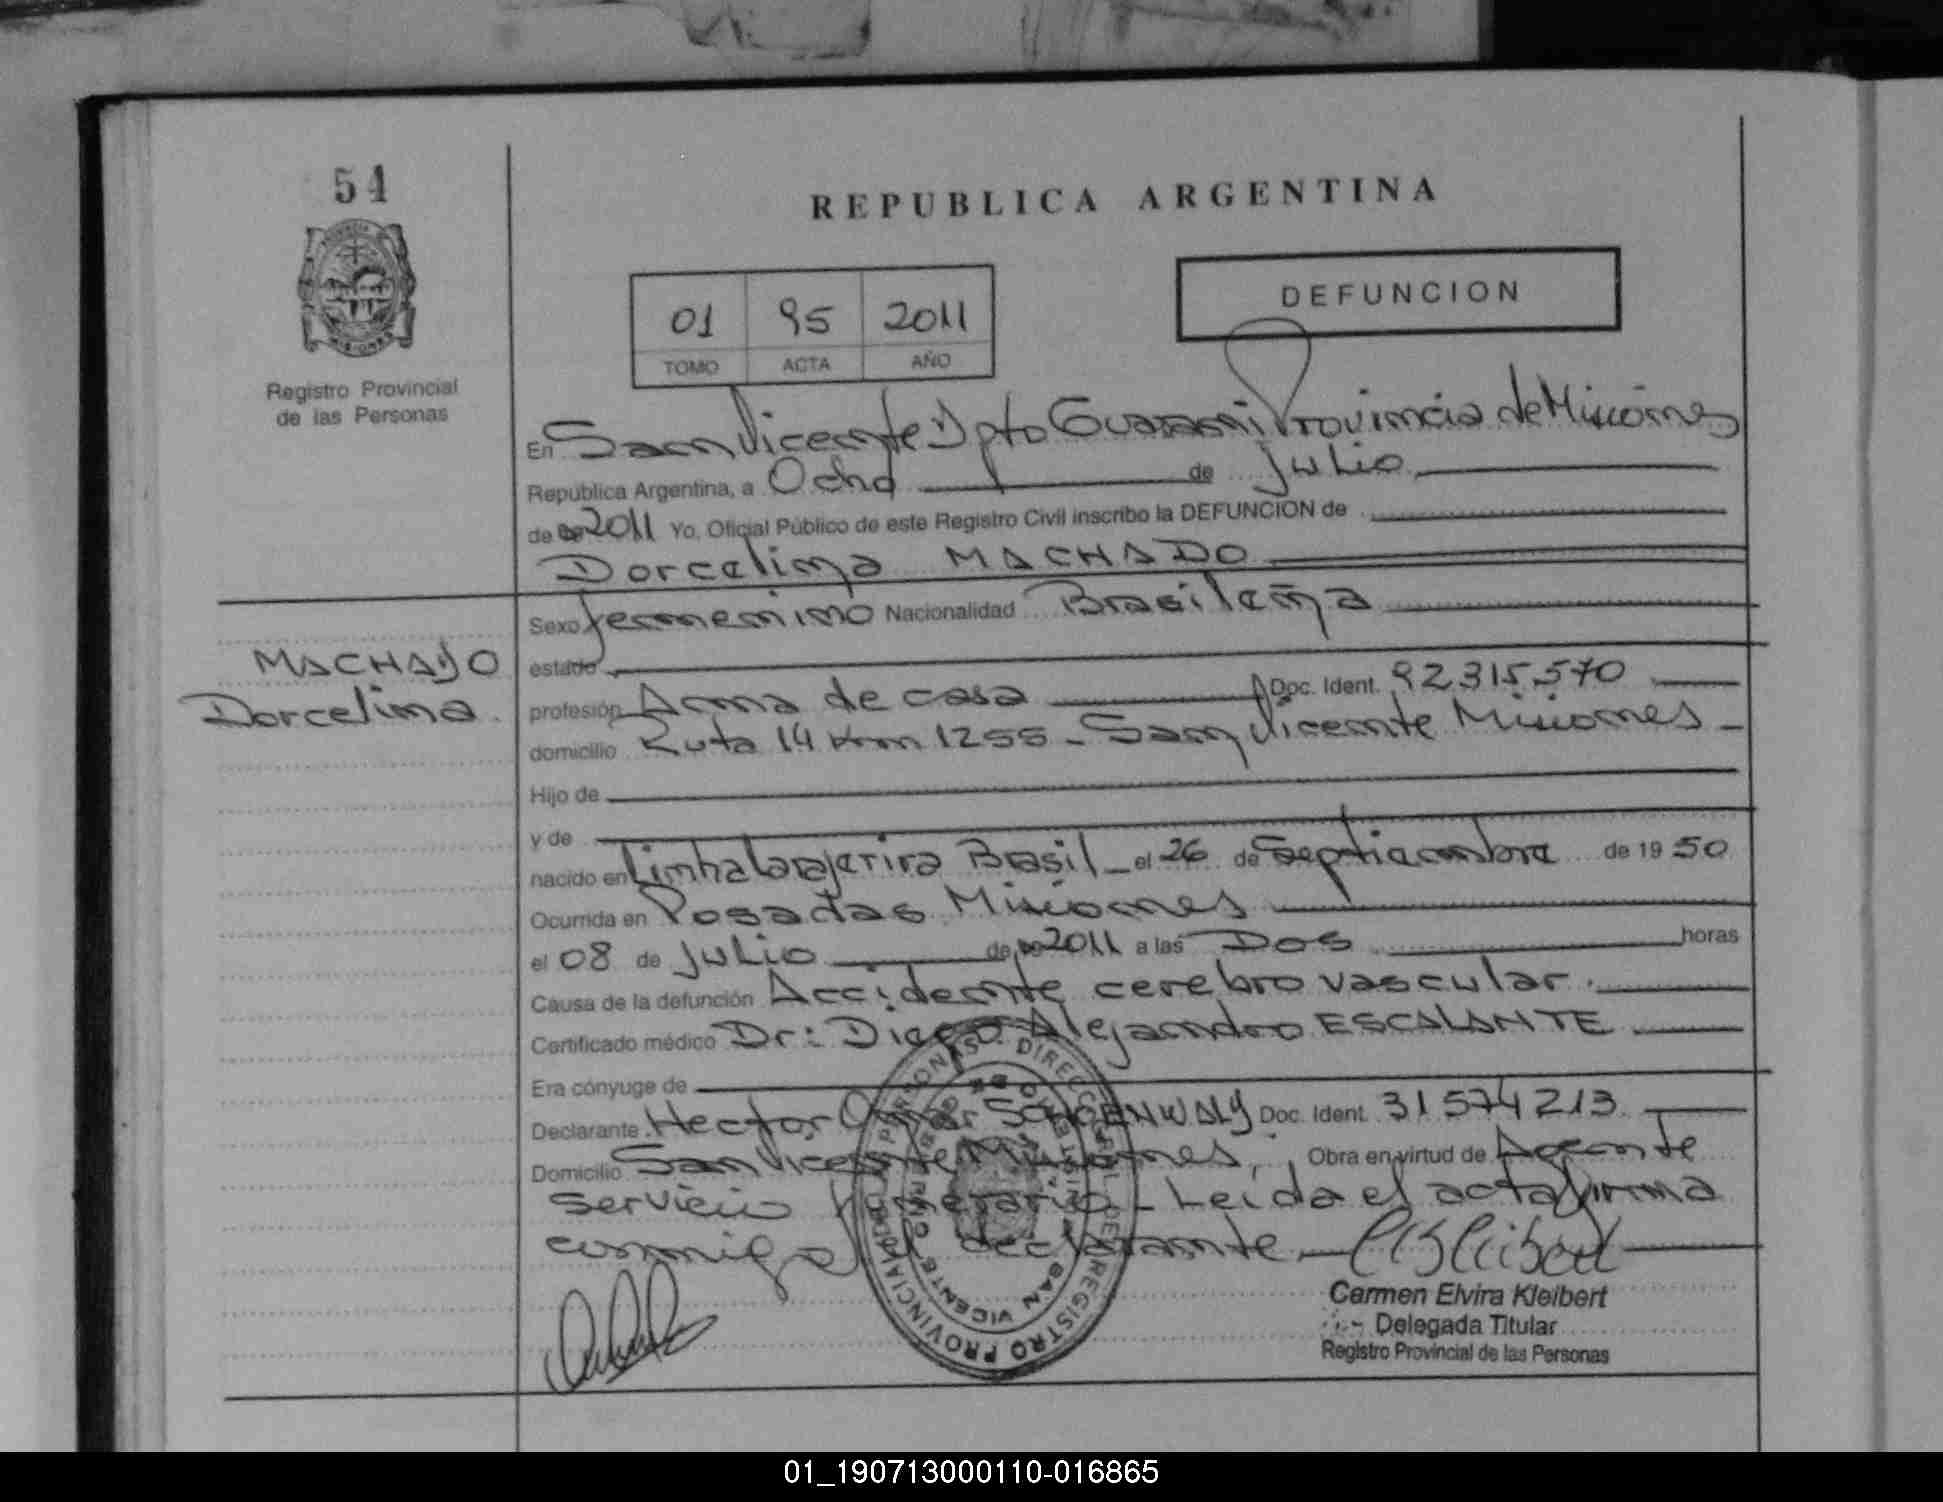 54
REPUBLICA ARGENTINA
DEFUNCION
01 95 2011
TOMO ACTA AÑO
Registro Provincial
de las Personas
En San Vicente Dpto Guarani Provincia de Misiones
República Argentina, a Ocho de Julio
de 2011 Yo, Oficial Público de este Registro Civil inscribo la DEFUNCION de
Dorcelina MACHADO
Sexo femenino Nacionalidad Brasileña
MACHADO
Dorcelina
estado
profesión Ama de casa Doc. Ident. 92315570
domicilio Ruta 14 Km 1255 - San Vicente Misiones -
Hijo de
y de
nacido en Brasil - el 26 de Septiembre de 1950
Ocurrida en Posadas Misiones
el 08 de Julio de 2011 a las Dos horas
Causa de la defunción Accidente cerebro vascular.
Certificado médico Dr: Diego Alejandro ESCALANTE
Era cónyuge de
Declarante Hector Omar SCHOENWALD Doc. Ident. 31574213
Domicilio San Vicente Misiones, Obra en virtud de Agente
servicio funerario - Leída el acta firma
conmigo el declarante
Carmen Elvira Kleibert
Delegada Titular
Registro Provincial de las Personas
DIRECCION GENERAL DEL REGISTRO PROVINCIAL DE LAS PERSONAS
SAN VICENTE
01_190713000110-016865